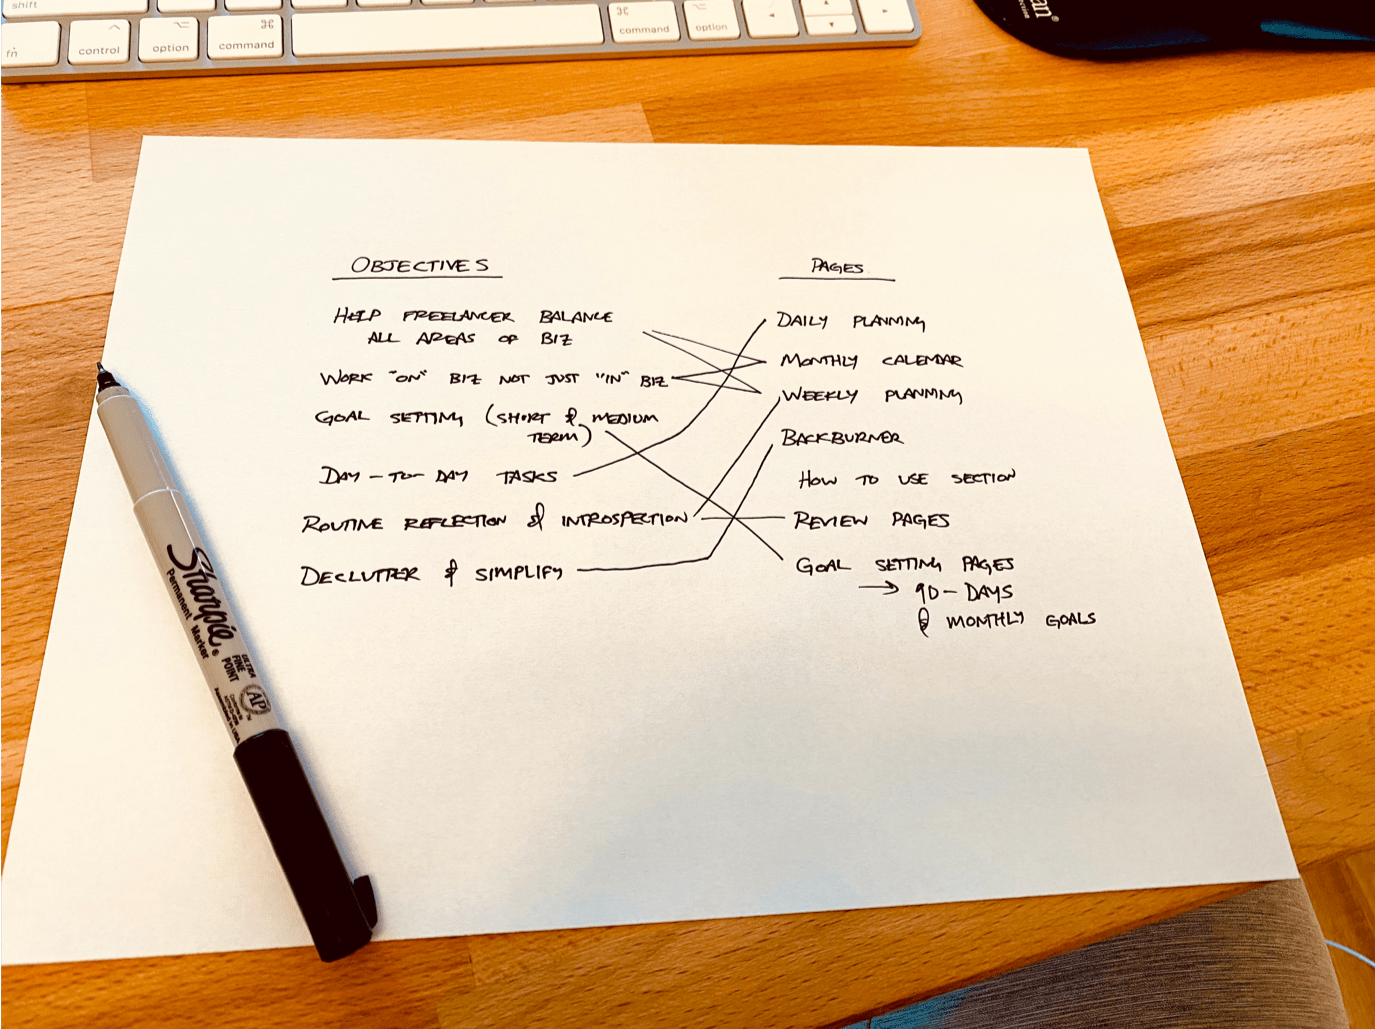 shift
fn
control
option
⌘
command
⌘
command
option
an®
OBJECTIVES
HELP FREELANCER BALANCE
ALL AREAS OF BIZ
WORK "ON" BIZ NOT JUST "IN" BIZ
GOAL SETTING (SHORT & MEDIUM
TERM)
DAY-TO-DAY TASKS
ROUTINE REFLECTION & INTROSPECTION
DECLUTTER & SIMPLIFY
PAGES
DAILY PLANNING
MONTHLY CALENDAR
WEEKLY PLANNING
BACKBURNER
HOW TO USE SECTION
REVIEW PAGES
GOAL SETTING PAGES
→ 90-DAYS
& MONTHLY GOALS
Sharpie®
Permanent Marker
ULTRA
FINE
POINT
AP